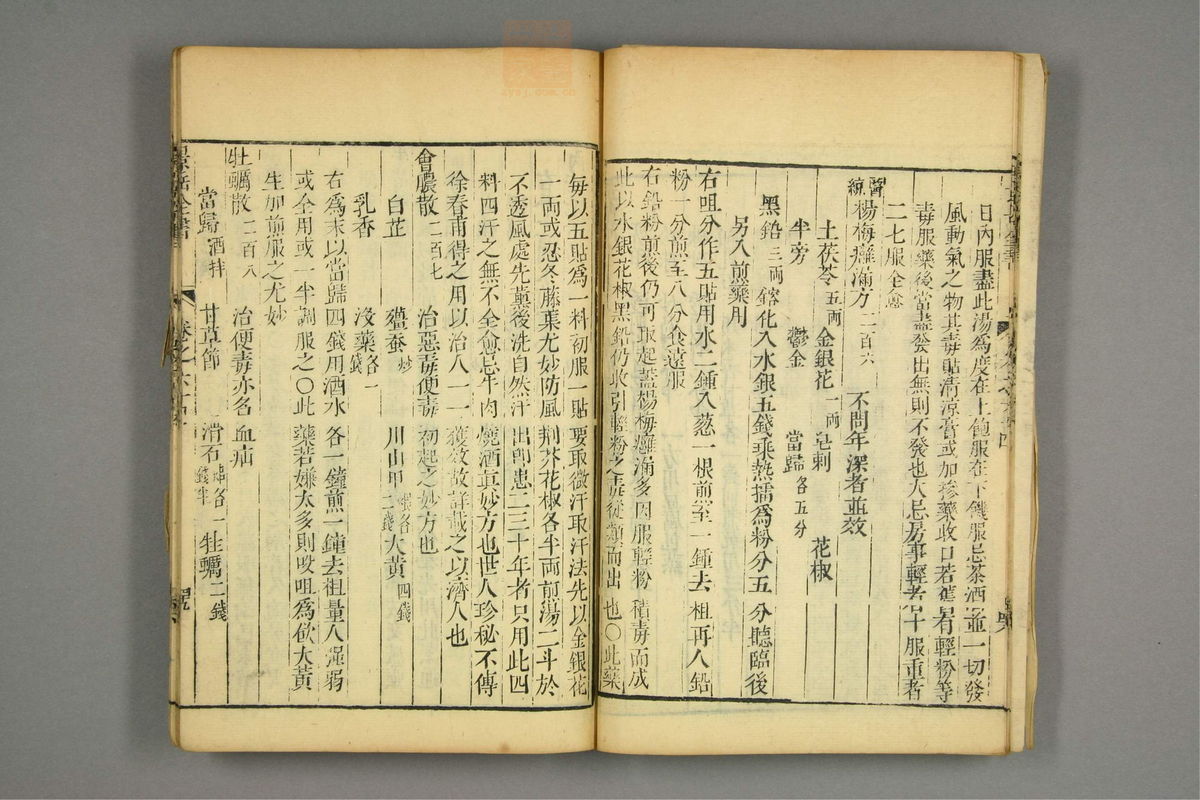 日內服盡此湯爲度在上飽服在下饑服忌茶酒並一切發
風動氣之物其毒貼清涼膏或加摻藥收口若舊有輕粉等
毒服藥後當盡發出無則不發也大忌房事輕者十服重者
二七服全愈
醫統楊梅癰漏方二百六 不問年深者並效
土茯苓五兩 金銀花一兩 皂刺 花椒
牛旁 鬱金 當歸各五分
黑鉛三兩 鎔化入水銀五錢乘熱擂爲粉分五分聽臨後
另入煎藥用
右咀分作五貼用水二鍾入葱一根煎至一鍾去柤再入鉛
粉一分煎至八分食遠服
右鉛粉煎後仍可取起蓋楊梅癰漏多因服輕粉積毒而成
此以水銀花椒黑鉛仍收引輕粉之毒從類而出也○此藥
每以五貼爲一料初服一貼要取微汗取汗法先以金銀花
一兩或忍冬藤葉尤妙防風荆芥花椒各半兩煎湯二斗於
不透風處先薰後洗自然汗出卽患二三十年者只用此四
料四汗之無不全愈忌牛肉燒酒真妙方也世人珍秘不傳
徐春甫得之用以治人一一獲效故詳載之以濟人也
會膿散二百七 治惡毒便毒初起之妙方也
白芷 殭蚕炒 川山甲二錢 大黃四錢
乳香 沒藥各一錢
右爲末以當歸四錢用酒水各一鐘煎一鐘去柤量人强弱
或全用或一半調服之○此藥若嫌太多則㕮咀爲飮大黃
生加煎服之尤妙
牡蠣散二百八 治便毒亦名血疝
當歸酒拌 甘草節 滑石各一錢半 牡蠣二錢
景岳全書 卷之六十四